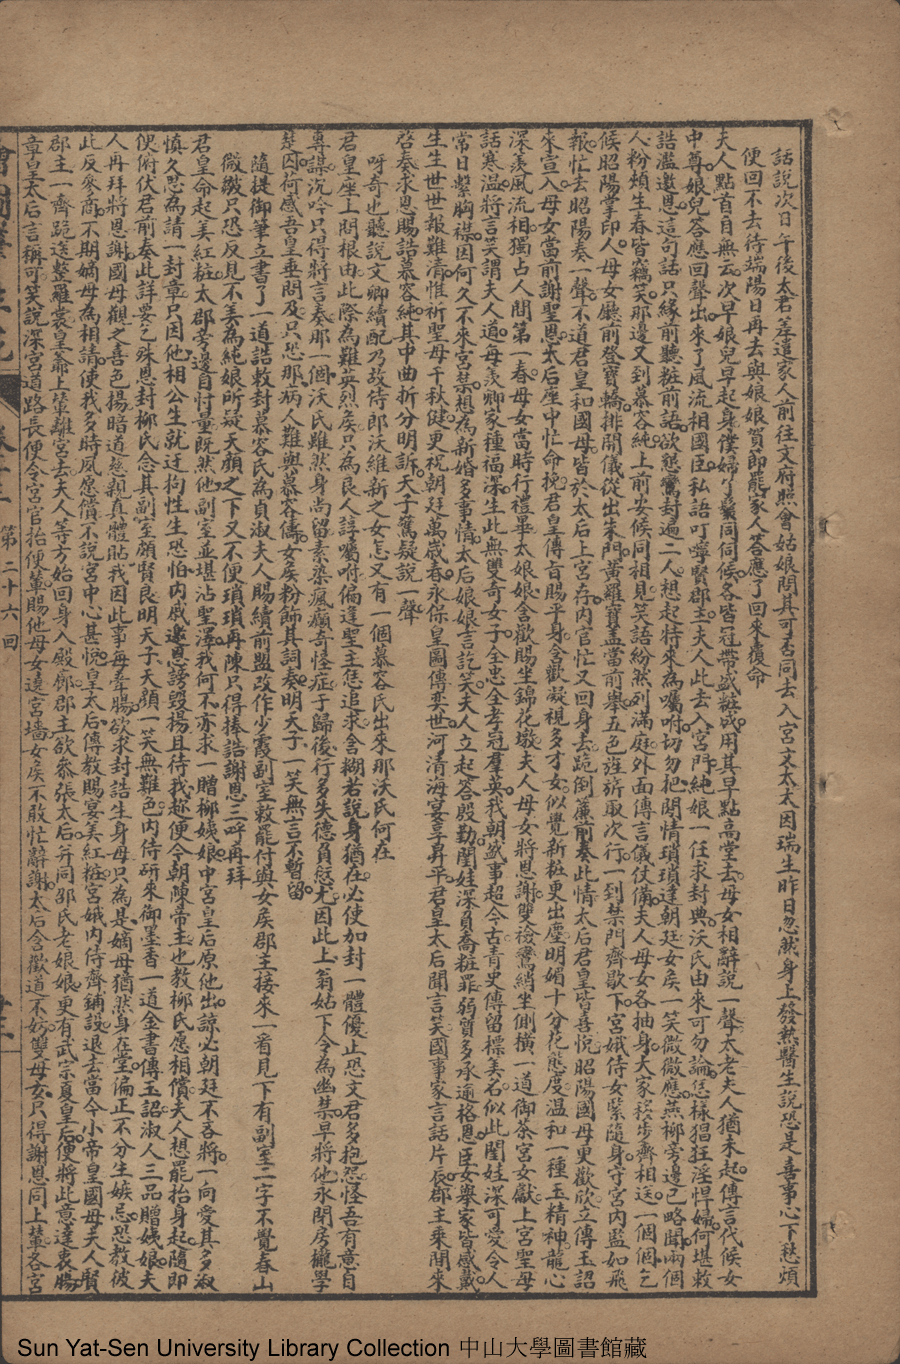 話說次日午後太君差遣家人前往文府照會姑娘問其可否同去入宮文太夫因瑞生昨日忽然身上發熱醫生說恐是喜事心下愁煩
便回不去待端陽日再去與娘娘賀節罷家人答應了回來覆命
夫人點首自無云次早娘兒早起身僕婦丫鬟同伺候各皆冠帶盛粧成用其早點高堂去母女相辭說一聲太老夫人猶未起傳言代候女
中尊娘兒答應回聲出來了風流相國臣私語叮嚀賢郡主夫人此去入宮門純娘一任求封典沃氏由來可勿論怎樣猖狂淫悍婦何堪敕
誥濫邀恩這句話只緣前聽粧前語欲懇鸞封遍二人想起特來為囑咐切勿把閒情瑣瑣達朝廷女矦一笑微微應燕柳旁邊已略聞兩個
人心粉煩生春皆竊笑那邊又到慕容純上前安候同相見笑語紛然列滿庭外面傳言儀仗備夫人母女各抽身大家移步齊相送一個個乞
候昭陽掌印人母女廳前登寶輪排開儀從出朱門黃羅寶蓋當前舉五色旌旂取次行一到禁門齊歇下宮娥侍女紫隨身守宮內監如飛
報忙去昭陽奏一聲不道君皇和國母皆於太后上宮存內官忙又回身去跪倒簾前奏此情太后君皇皆喜悅昭陽國母更歡欣立傳玉詔
來宣入母女當前謝聖恩太后座中忙命挽君皇傳旨賜平身含歡凝視多才女似覺新粧更出塵明媚十分花態度溫和一種玉精神龍心
深羨風流相獨占人間第一春母女當時行禮畢太娘娘含歡賜坐錦花墩夫人母女將恩謝雙設鸞綃坐側橫一道御茶宮女獻上宮聖母
話寒溫將言笑謂夫人道母義卿家種福深生此無雙奇女子全忠全孝冠羣英我朝盛事超今古青史傳留標美名似此閨娃深可愛令人
常日繫胸襟因何久不來宮禁想為新婚多事情太后娘娘言訖笑夫人立起答殷勤閨娃深負喬粧罪弱質多承逾格恩臣女舉家皆感戴
生生世世報難清惟祈聖母千秋健更祝朝廷萬歲春永保皇圖傳奕世河清海宴享昇平君皇太后聞言笑國事家言話片辰郡主乘閒來
啓奏求恩賜誥慕容純其中曲折分明訴天子驚疑說一聲
呀奇也聽說文卿續配乃故侍郎沃維新之女怎又有一個慕容氏出來那沃氏何在
君皇座上問根由此際為難英烈矦只為良人諄囑咐偏逢聖主恁追求含糊若說身猶在必使加封一體優止恐文君多抱怨怪吾有意自
專謀沉吟只得將言奏那一個沃氏雖然身尚留素染瘋癲奇怪症于歸後行多失德負愆尤因此上翁姑下令為幽禁早將他永閉房櫳學
楚囚何感吾皇垂問及只恐那病人難與慕容儔女矦粉飾其詞奏明天子一笑無言不暫留
隨提御筆立書了一道誥敕封慕容氏為貞淑夫人賜續前盟改作少霞副室敕罷付與女矦郡主接來一看見下有副室二字不覺春山
微皺只恐反見不美為純娘所疑天顏之下又不便瑣瑣再陳只得捧誥謝恩三呼再拜
君皇命起美紅粧太郡旁邊自忖量既然他副室並堪沾聖澤我何不亦求一贈柳姨娘中宮皇后原他出諒必朝廷不吝將一向愛其多淑
慎久思為請一封章只因他相公生就迂拘性生恐怕內戚邀恩謗毀揚且待我趁便今朝陳帝主也教柳氏愿相償夫人想罷抬身起隨即
便俯伏君前奏此詳要乞殊恩封柳氏念其副室頗賢良明天子天顏一笑無難色內侍研來御墨香一道金書傳玉詔淑人三品贈姨娘夫
人再拜將恩謝國母觀之喜色揚暗道慈親真體貼我因此事每牽腸欲求封誥生身母只為是嫡母猶然身在堂偏正不分生嫉忌恐教彼
此反參商不期嫡母為相請使我多時夙愿償不說宮中心甚悅皇太后傳教賜宴美紅粧宮娥內侍齊鋪設退去當今小帝皇國母夫人賢
郡主一齊跪送整羅裳皇爺上輦離宮去夫人等方始回身入殿廊郡主欲叅張太后并同邵氏老娘娘更有武宗夏皇后便將此意達衷腸
章皇太后言稱可笑說深宮道路長便令宮官抬便輦賜他母女遶宮墻女矦不敢忙辭謝太后含歡道不妨雙母女只得謝恩同上輦各宮
第二十六回
Sun Yat-Sen University Library Collection 中山大學圖書館藏